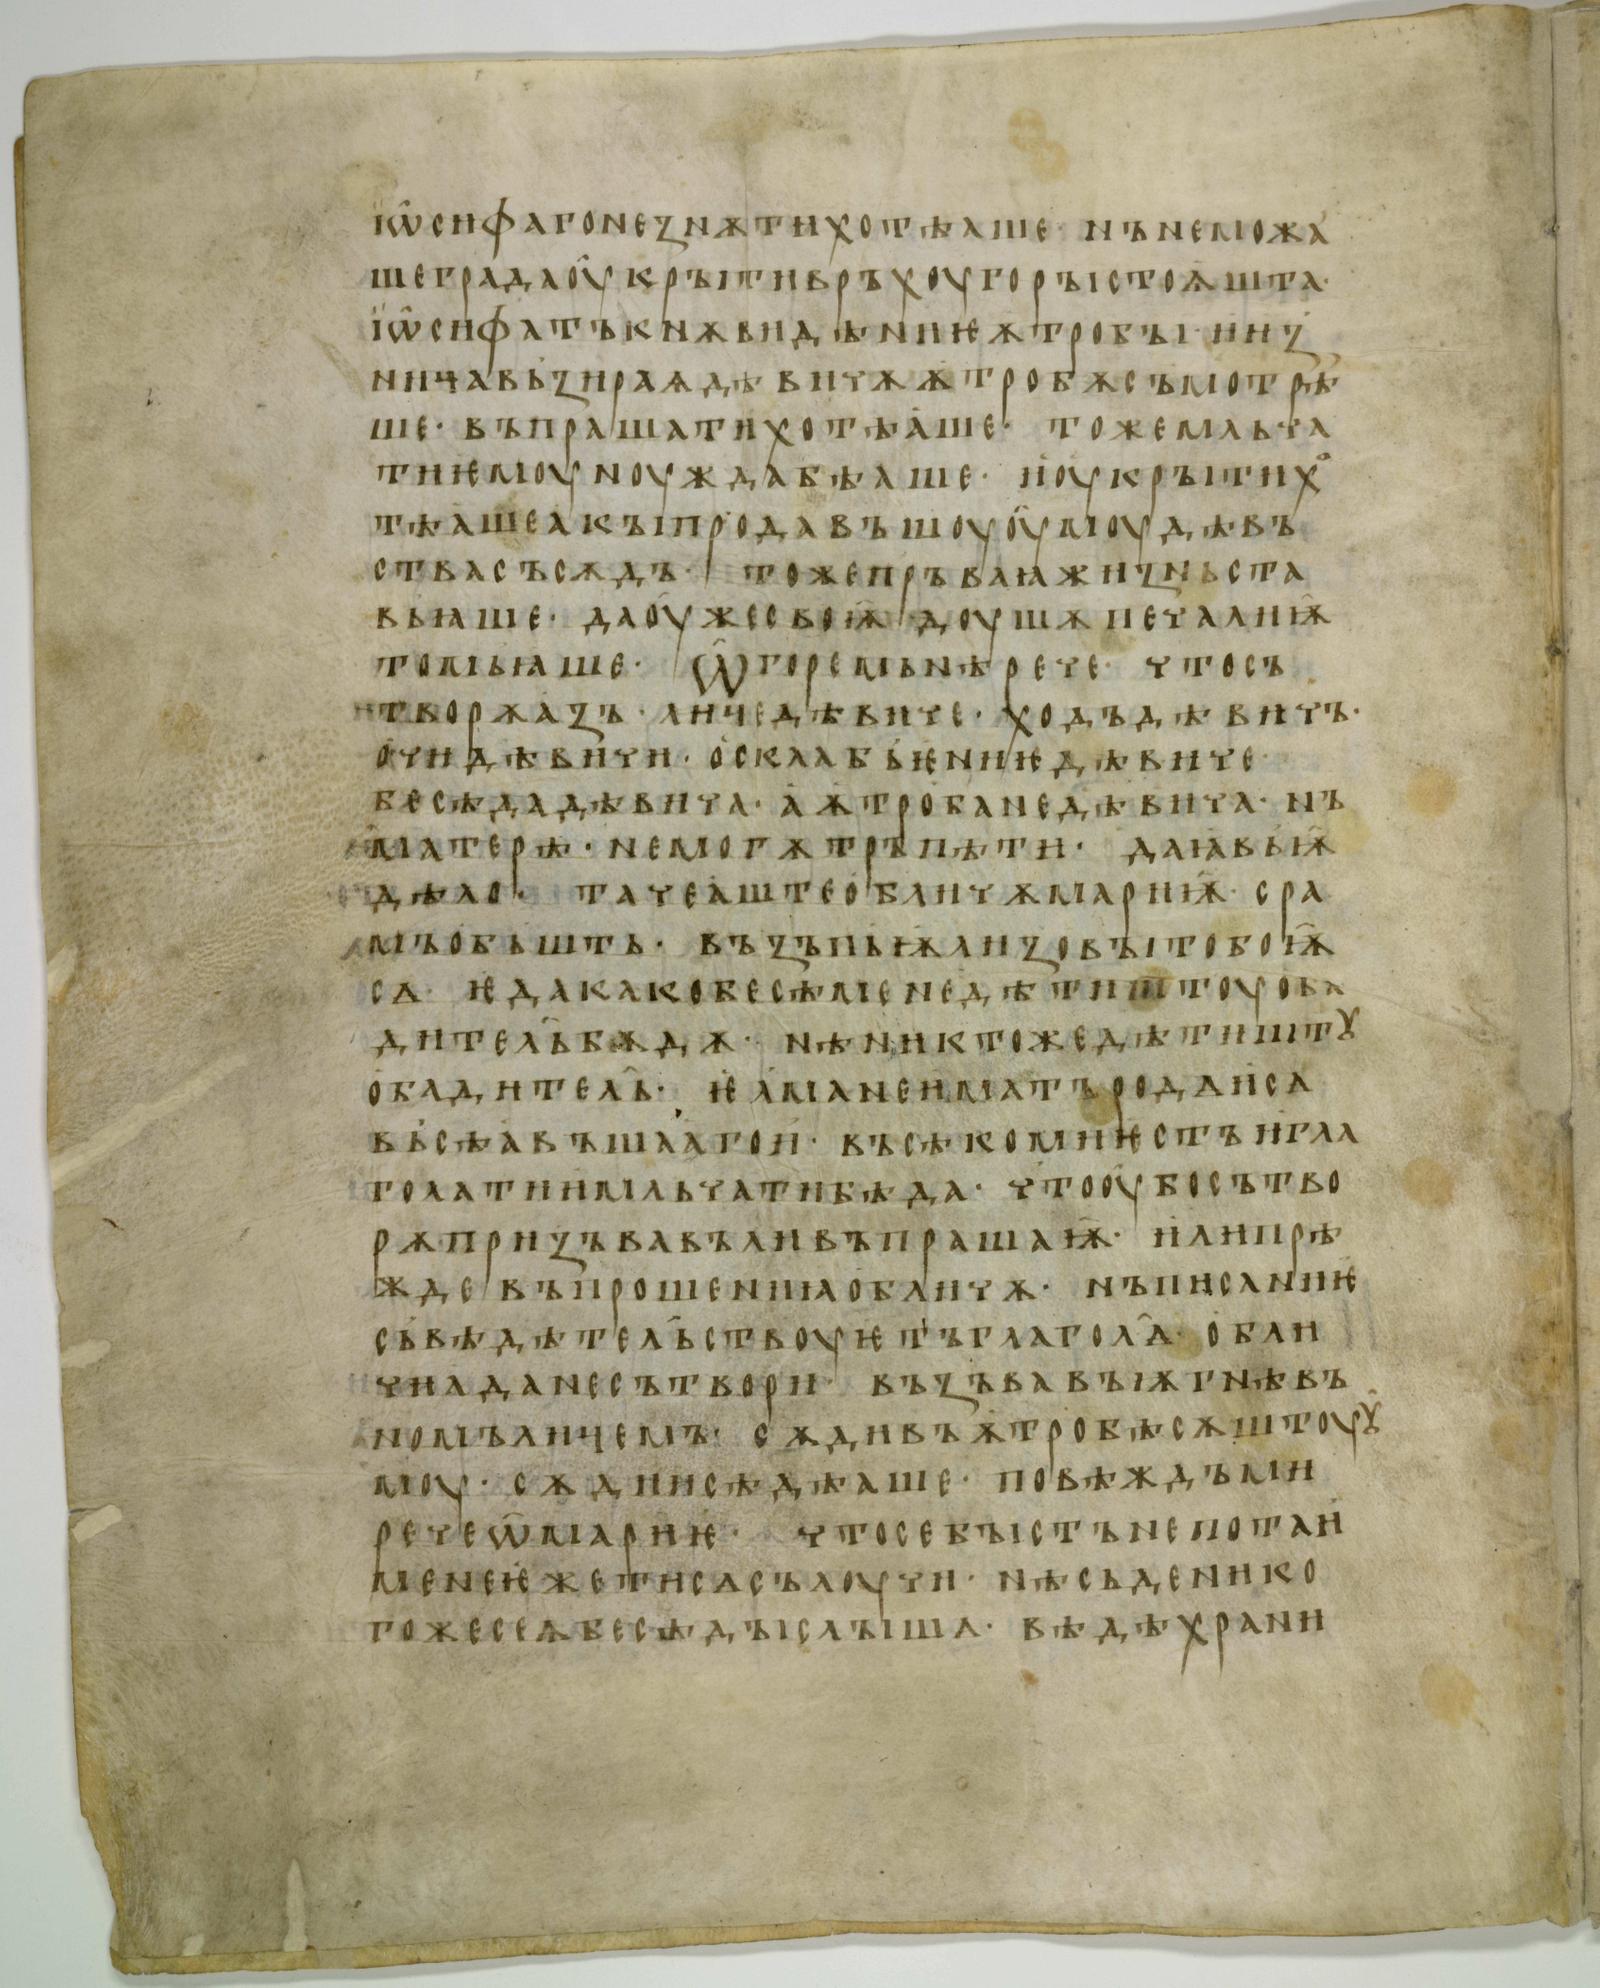 їѡ҃сифагонеꙁнѫтихотѣаше· нънеможа
шеградаоу҃крꙑтивръхоугорꙑстоѧшта·
їѡ҃сифатъкнѫвидѣниѥѫтробꙑ· ииꙁ
ничавьꙁираѧдѣвичѫѫтробѫсъмотрѣ
ше· въпрашатихотѣаше· тожемльча
тиѥмоуноуждабѣаше· иоукрꙑтихо
тѣашеакꙑпродавъшоуоу҃моудѣвъ
ствасъсѫдъ· тожепръваꙗжиꙁньста
вьꙗше· даоу҃жесвоѭ҃доушѫпечалиѭ҃
томьꙗше· ѡ҃гореmьнѣрече· чтосъ
творѫаꙁъ· личедѣвиче· ходъдѣвичъ·
очидѣвичи· осклабьѥниѥдѣвиче·
бесѣдадѣвича· аѫтробанедѣвича· нъ
матерѣ· немогѫтръпѣти· даꙗвьѭ҃
дѣло· тачеаштеобличѫмариѭ· сра
мъобьшть· въꙁъпьѭлиꙁовꙑтобоѭ҃
сѧ· ѥдакакобесѣменедѣтиштоуобл
дител҄ьбѫдѫ· нѣниктожедѣтиштꙋ
обладител҄ь· ѥлманеиматъродаиса
вьсѣавъшаагои· въсѣкомиѥстъигла
голатиимльчатибѣда· чтооу҃босътво
рѫприꙁъвавъливъпрашаѭ҃· илипрѣ
ждевъпрошениꙗобличѫ· нъписаниѥ
свѣдѣтел҄ьствоуѥтъглагол҄ѧ· обли
чиладанесътвори· въꙁъвавꙑѫгнѣвъ
номъличемъ· сѫдивъѫтробѣсѫштоуꙋ҃
моу· сѫдиисѣдѣаше· повѣждъми
речеѡ҃мариѥ· чтосебꙑстънепотаи
менеѥжетисѧсълоучи· нѣсьдеnико
гожесеѧбесѣдꙑслꙑша· вѣдѣхрани